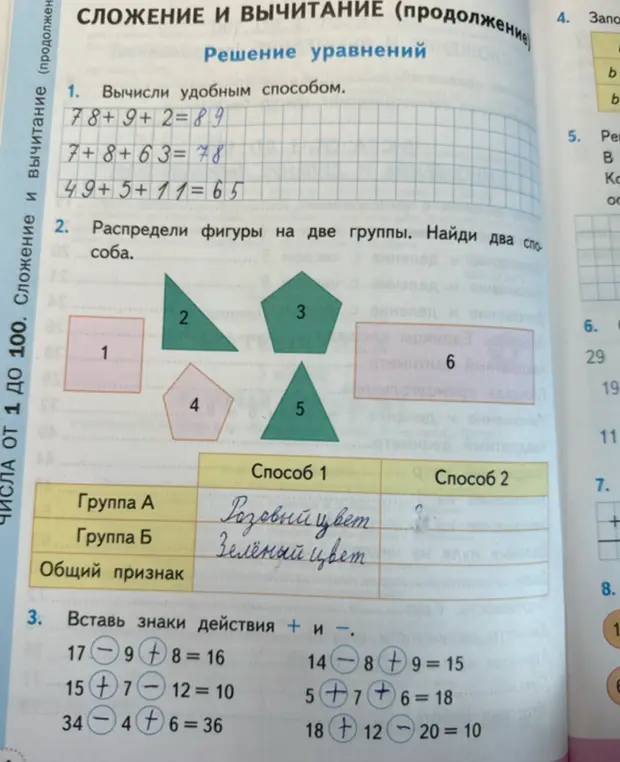 СЛОЖЕНИЕ И ВЫЧИТАНИЕ (продолжение)
Решение уравнений
1. Вычисли удобным способом.
78+9+2=89
7+8+63=78
49+5+11=65
2. Распредели фигуры на две группы. Найди два спо-
соба.
1
2
3
4
5
6
Способ 1 Способ 2
Группа А Розовый цвет
Группа Б Зелёный цвет
Общий признак
3. Вставь знаки действия + и −.
17 − 9 + 8 = 16 14 − 8 + 9 = 15
15 + 7 − 12 = 10 5 + 7 + 6 = 18
34 − 4 + 6 = 36 18 + 12 − 20 = 10
ЧИСЛА ОТ 1 ДО 100. Сложение и вычитание (продолжен
4. Запо
b
b
5. Ре
В
6.
29
19
11
7.
+
8.
1